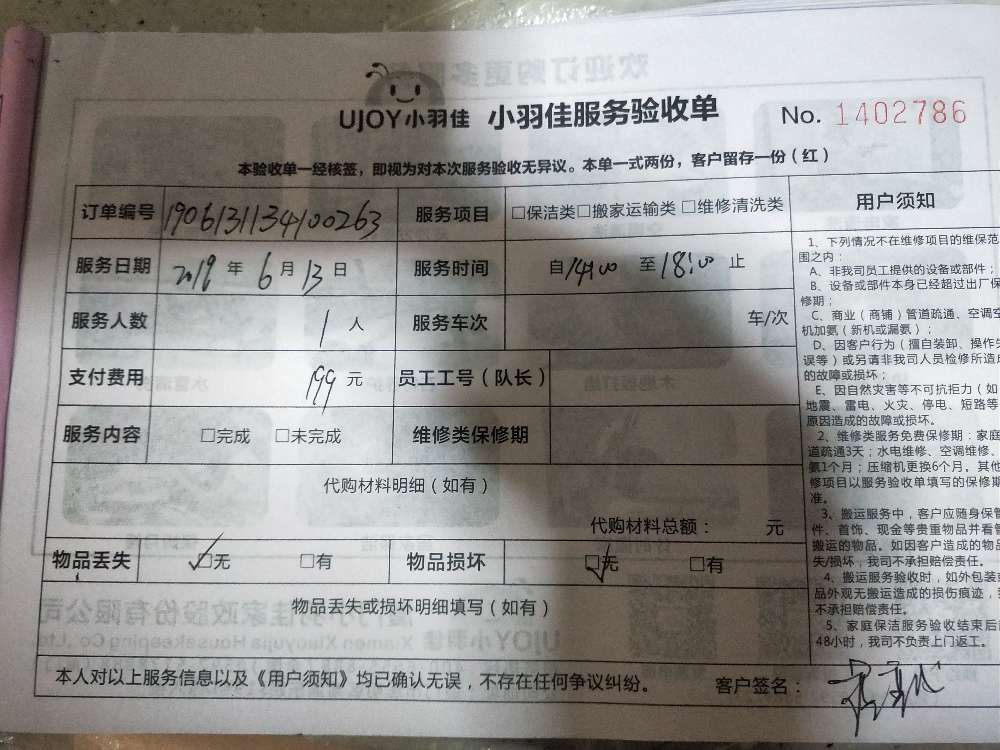 UJOY小羽佳 小羽佳服务验收单 No. 1402786
本验收单一经核签，即视为对本次服务验收无异议。本单一式两份，客户留存一份（红）
订单编号 1906131134100263 服务项目 □保洁类□搬家运输类□维修清洗类
服务日期 2019年 6月 13日 服务时间 自14:00 至18:00 止
服务人数 1 人 服务车次 车/次
支付费用 199 元 员工工号（队长）
服务内容 □完成 □未完成 维修类保修期
代购材料明细（如有）
代购材料总额： 元
物品丢失 ☑无 □有 物品损坏 ☑无 □有
物品丢失或损坏明细填写（如有）
本人对以上服务信息以及《用户须知》均已确认无误，不存在任何争议纠纷。 客户签名：
用户须知
1、下列情况不在维修项目的维保范
围之内：
A、非我司员工提供的设备或部件；
B、设备或部件本身已经超过出厂保
修期；
C、商业（商铺）管道疏通、空调空
机加氨（新机或漏氨）；
D、因客户行为（擅自装卸、操作失
误等）或另请非我司人员检修所造成
的故障或损坏；
E、因自然灾害等不可抗拒力（如
地震、雷电、火灾、停电、短路等
原因造成的故障或损坏。
2、维修类服务免费保修期：家庭
道疏通3天；水电维修、空调维修、
氨1个月；压缩机更换6个月。其他
修项目以服务验收单填写的保修期
准。
3、搬运服务中，客户应随身保管
件、首饰、现金等贵重物品并看管
搬运的物品。如因客户造成的物品
失/损坏，我司不承担赔偿责任。
4、搬运服务验收时，如外包装或
品外观无搬运造成的损伤痕迹，我
不承担赔偿责任。
5、家庭保洁服务验收结束后超
48小时，我司不负责上门返工。